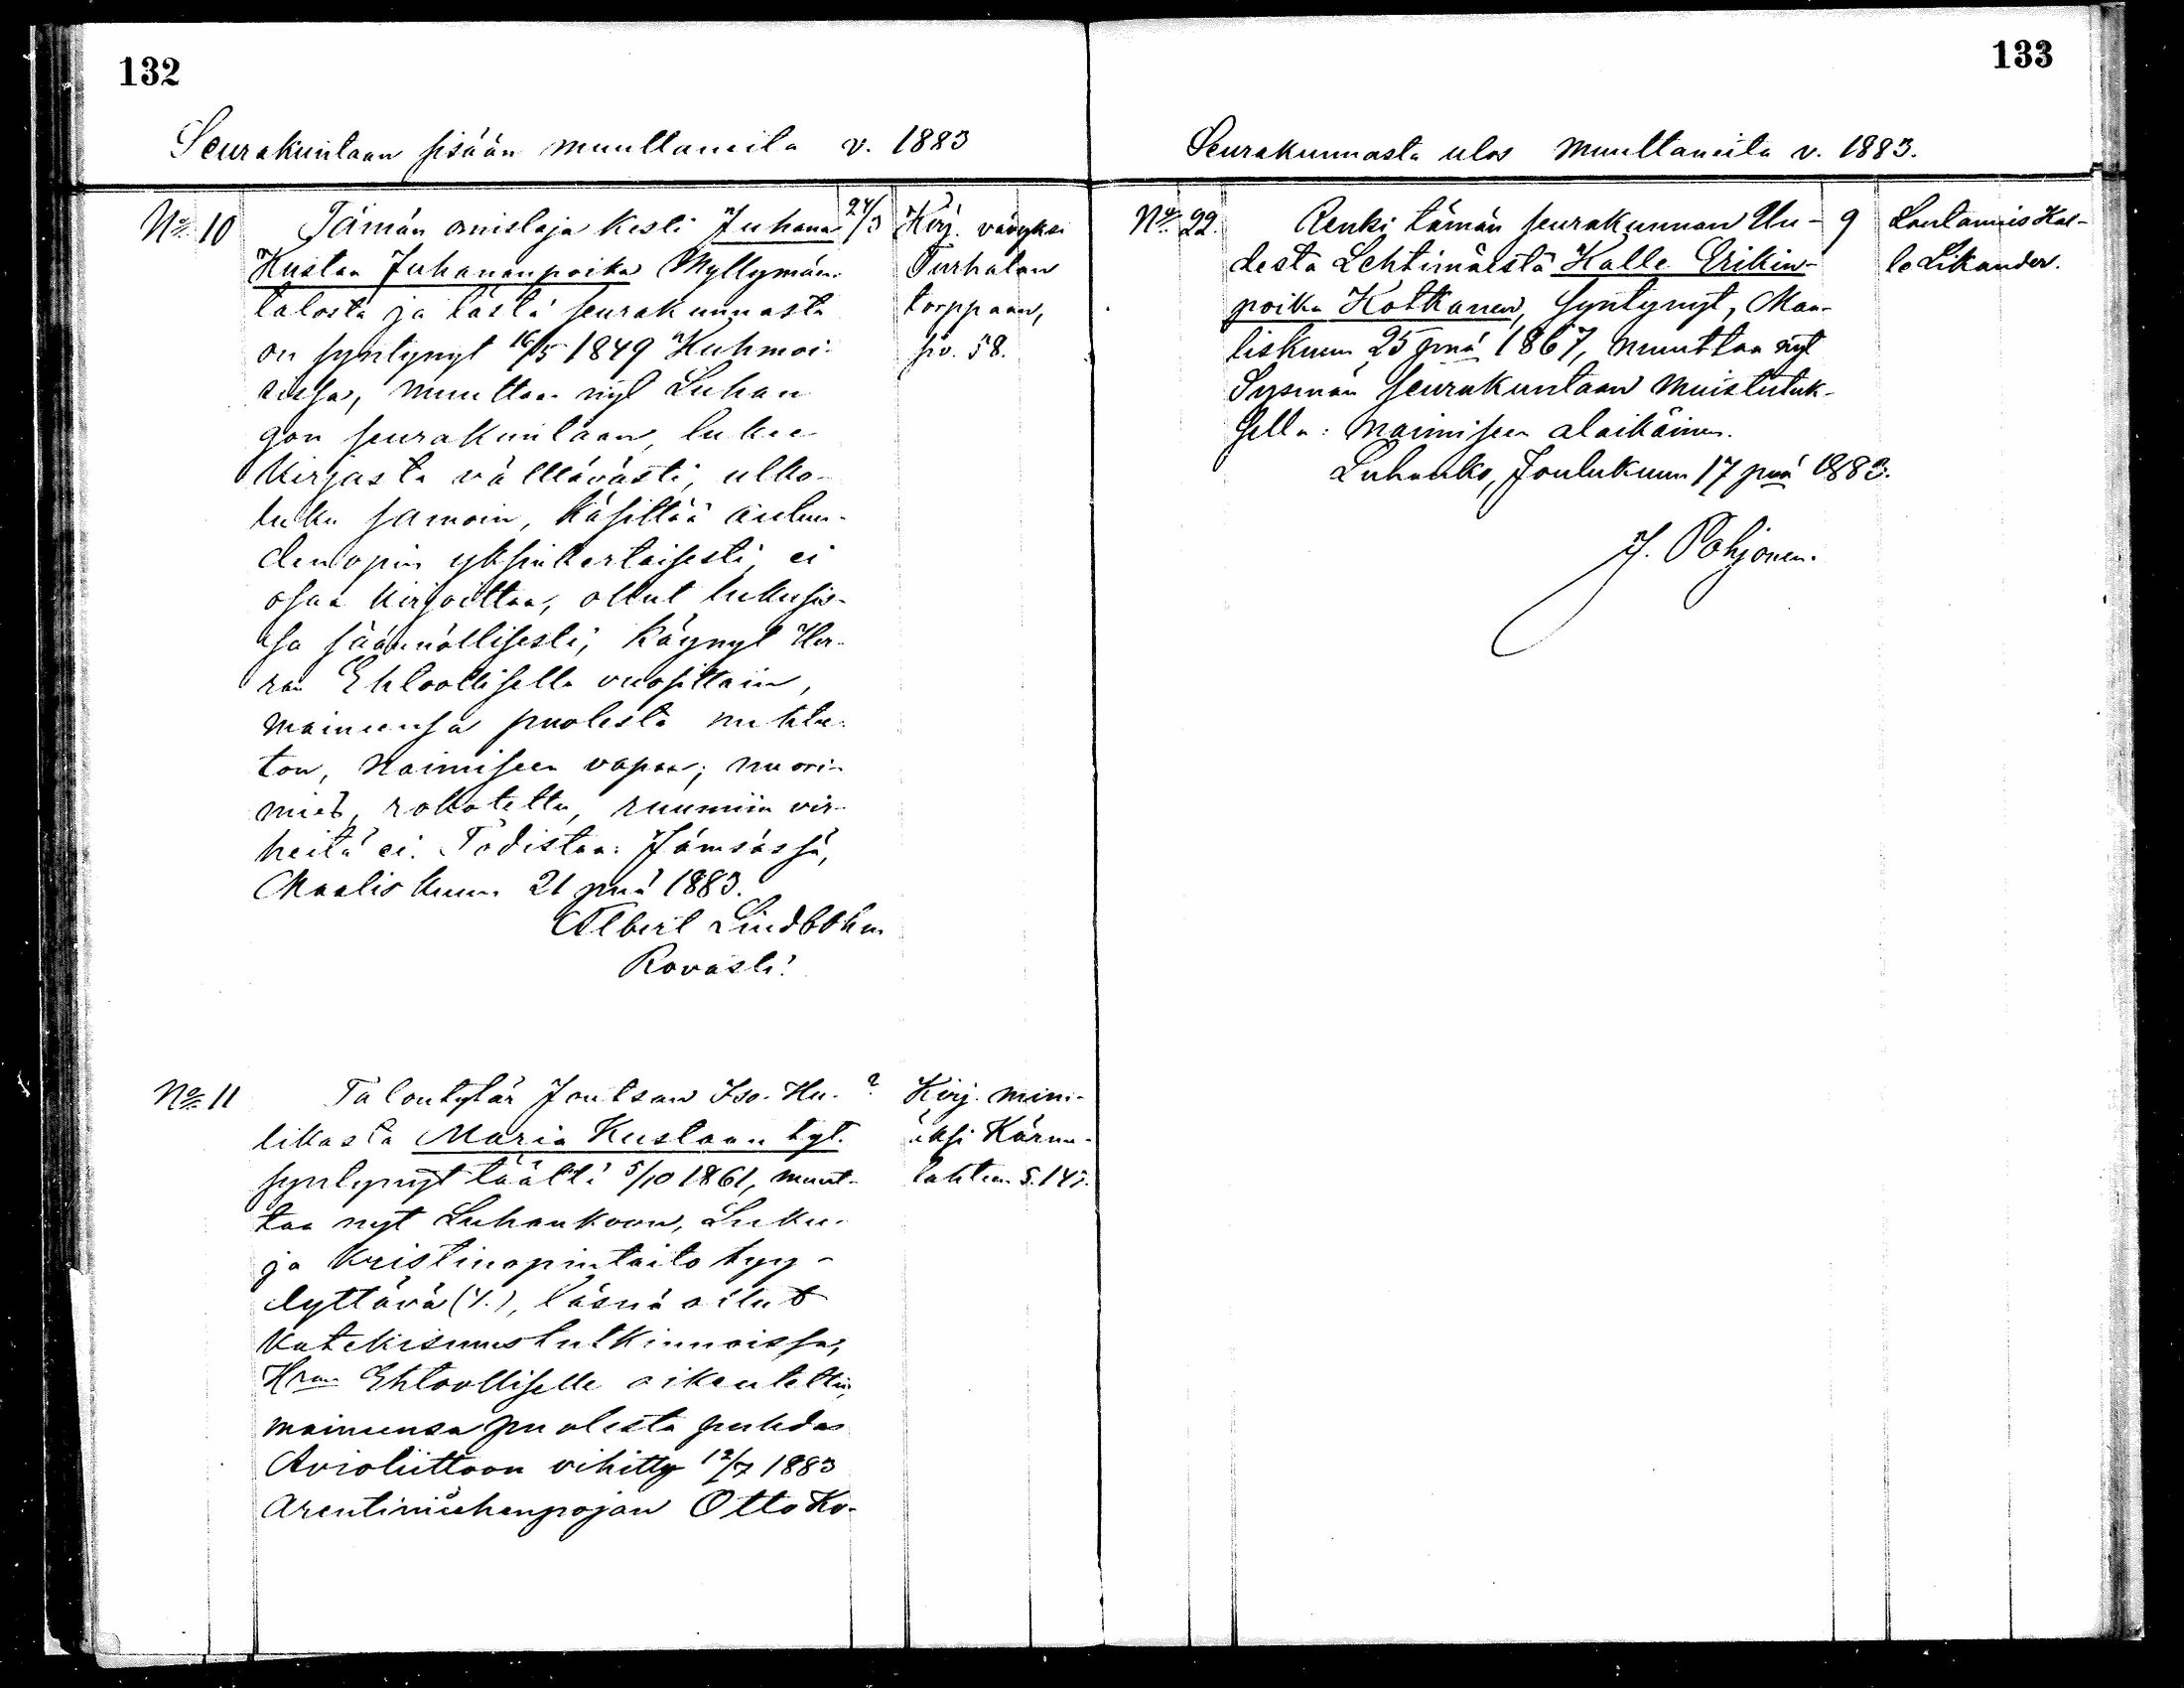 132
Seurakuntaan sisään muuttaneita v. 1883
No 10
Tämän omistaja kesti Juhana
Kustaa Juhananpoika Myllymäen
talosta ja tästä seurakunnasta
on syntynyt 16/5 1849 Kuhmoi-
sissa, muuttaa nyt Luhan
gon seurakuntaan, lukee
kirjasta välttävästi, ulko-
luku samoin, käsittää autuu-
den opin yksinkertaisesti, ei
osaa kirjoittaa, ollut lukusis-
sa säännöllisesti, käynyt Her-
ran Ehtoollisella vuosittain,
maineensa puolesta nuhtee-
ton, naimiseen vapaa; nuori-
mies, rokotettu, ruumiin vir-
heitä ei. Todistaa: Jämsässä,
Maaliskuun 21 pnä 1883.
Albert Lindbohm
Rovasti.
24/3
Kirj. vävyksi
Turhalan
torppaan,
siv. 58.
No 11
Talontytär Joutsan Iso-Hu-
likasta Maria Kustaan tyt.
syntynyt täällä 5/10 1861, muut-
taa nyt Luhankoon, Luku-
ja kristinopintaito tyy-
dyttävä (1.), läsnä ollut
katekismustutkinnoissa,
Hran Ehtoolliselle oikeutettu,
maineensa puolesta puhdas
Avioliittoon vihitty 12/7 1883
arentimiehenpojan Otto Ko-
?
Kirj. mini-
äksi Kärme-
lahteen S. 147.
133
Seurakunnasta ulos muuttaneita v. 1883.
No 22.
Renki tämän seurakunnan Uu-
desta Lehtimäestä Kalle Erikin-
poika Kotkanen, syntynyt, Maa-
liskuun 25 pnä 1867, muuttaa nyt
Sysmän seurakuntaan muistutuk-
sella: naimiseen alaikäinen.
Luhanko, Joulukuun 17 pnä 1883.
J. Pohjonen.
9
Lautamies Kal-
le Likander.